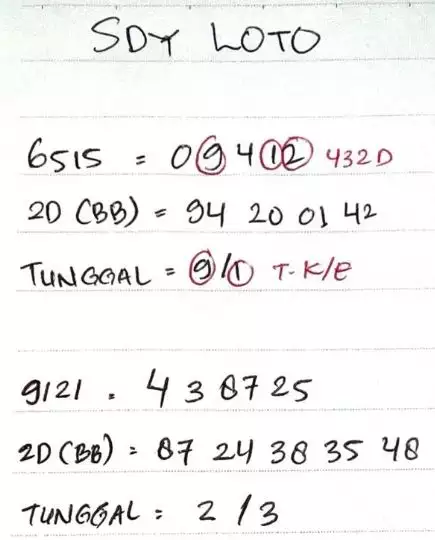 SDY LOTO
6515 = 09412 432D
2D (BB) = 94 20 01 42
TUNGGAL = 9/1 T-K/E
9121 = 438725
2D (BB) = 87 24 38 35 48
TUNGGAL = 2/3